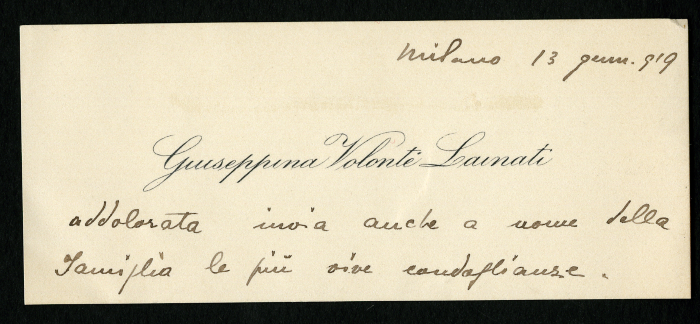 Milano 13 genn. 919
Giuseppina Volontè Lainati
addolorata invia anche a nome della
Famiglia le più vive condoglianze.